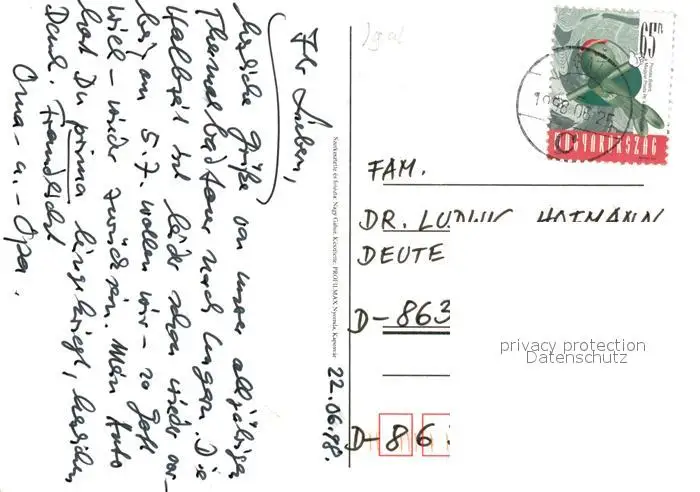 Ihr Lieben,
herzliche Grüße von unserer alljährigen
Thermalbadtour nach Ungarn. Die
Halbzeit ist leider schon wieder vor-
bei am 5.7. wollen wir – so Gott
will – wieder zurück sein. Mein Auto
hast Du prima hingekriegt, herzlichen
Dank.
Oma- u.- Opa.
22.06.98.
Szerkesztette és fotózta: Nagy Gábor, Készítette: PROFILMAX Nyomda, Kaposvár
65 Ft
MAGYARORSZÁG
1998 06 25
FAM.
DR. LUDWIG HOFMANN
DEUTE
D-863
D-86
privacy protection
Datenschutz